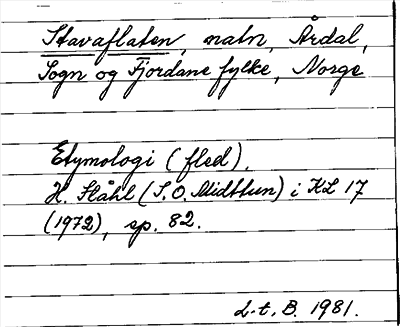 Stavaflaten, natn, Årdal,
Sogn og Fjordane fylke, Norge
Etymologi (fled).
H. Ståhl (S. O. Midttun) i KL 17
(1972), sp. 82.
L-t. B. 1981.